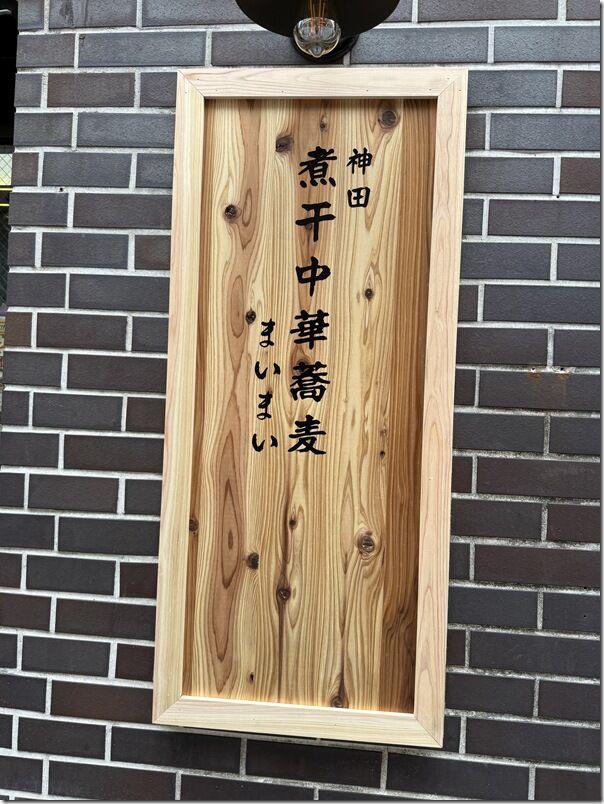 神田
煮干中華蕎麦
まいまい